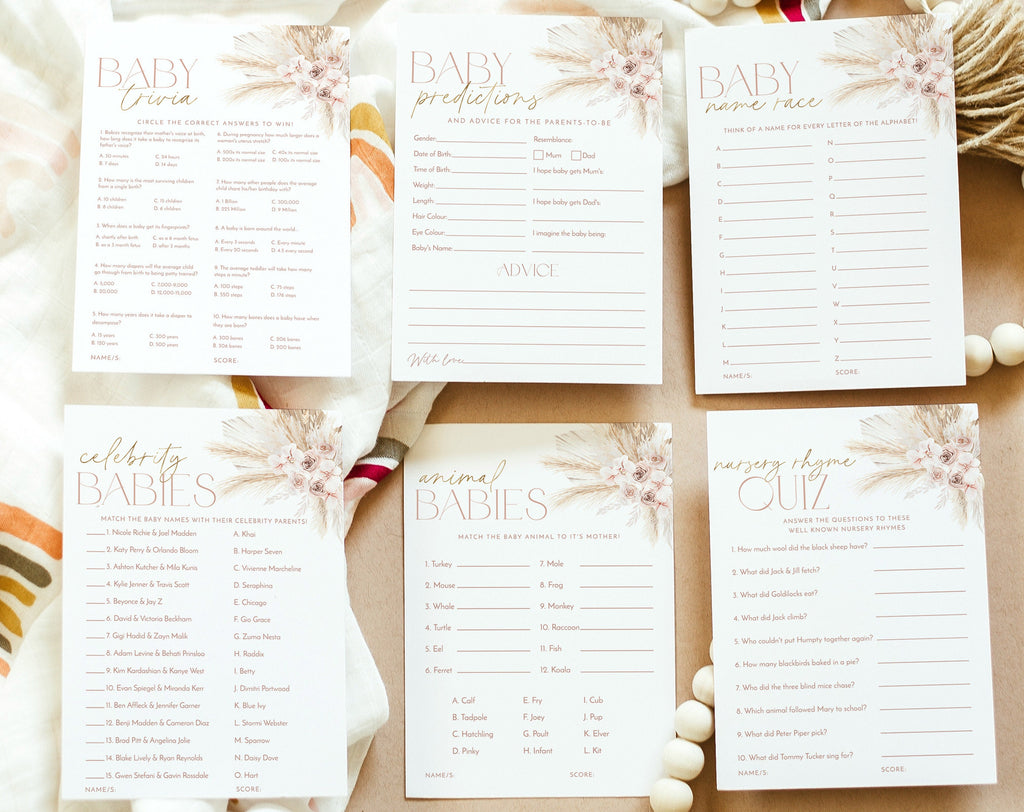 BABY
trivia
CIRCLE THE CORRECT ANSWERS TO WIN!
1. Babies recognise their mother's voice at birth,
how long does it take a baby to recognise its
father's voice?
A. 30 minutes C. 24 hours
B. 7 days D. 14 days
2. How many is the most surviving children
from a single birth?
A. 10 children C. 15 children
B. 8 children D. 6 children
3. When does a baby get its fingerprints?
A. shortly after birth C. as a 6 month fetus
B. as a 3 month fetus D. after 3 months
4. How many diapers will the average child
go through from birth to being potty trained?
A. 5,000 C. 7,000-9,000
B. 20,000 D. 12,000-15,000
5. How many years does it take a diaper to
decompose?
A. 15 years C. 300 years
B. 150 years D. 500 years
NAME/S:
6. During pregnancy how much larger does a
women's uterus stretch?
A. 500x its normal size C. 40x its normal size
B. 200x its normal size D. 100x its normal size
7. How many other people does the average
child share his/her birthday with?
A. 1 Billion C. 500,000
B. 325 Million D. 9 Million
8. A baby is born around the world...
A. Every 3 seconds C. Every minute
B. Every 20 seconds D. 4.3 every second
9. The average toddler will take how many
steps a minute?
A. 100 steps C. 75 steps
B. 550 steps D. 176 steps
10. How many bones does a baby have when
they are born?
A. 300 bones C. 206 bones
B. 306 bones D. 200 bones
SCORE:
BABY
predictions
AND ADVICE FOR THE PARENTS-TO-BE
Gender:
Date of Birth:
Time of Birth:
Weight:
Length:
Hair Colour:
Eye Colour:
Baby's Name:
Resemblance:
Mum Dad
I hope baby gets Mum's:
I hope baby gets Dad's:
I imagine the baby being:
ADVICE
With love,
BABY
name race
THINK OF A NAME FOR EVERY LETTER OF THE ALPHABET!
A
B
C
D
E
F
G
H
I
J
K
L
M
NAME/S:
N
O
P
Q
R
S
T
U
V
W
X
Y
Z
SCORE:
celebrity
BABIES
MATCH THE BABY NAMES WITH THEIR CELEBRITY PARENTS!
1. Nicole Richie & Joel Madden
2. Katy Perry & Orlando Bloom
3. Ashton Kutcher & Mila Kunis
4. Kylie Jenner & Travis Scott
5. Beyonce & Jay Z
6. David & Victoria Beckham
7. Gigi Hadid & Zayn Malik
8. Adam Levine & Behati Prinsloo
9. Kim Kardashian & Kanye West
10. Evan Spiegel & Miranda Kerr
11. Ben Affleck & Jennifer Garner
12. Benji Madden & Cameron Diaz
13. Brad Pitt & Angelina Jolie
14. Blake Lively & Ryan Reynolds
15. Gwen Stefani & Gavin Rossdale
NAME/S:
A. Khai
B. Harper Seven
C. Vivienne Marcheline
D. Seraphina
E. Chicago
F. Gio Grace
G. Zuma Nesta
H. Raddix
I. Betty
J. Dimitri Portwood
K. Blue Ivy
L. Stormi Webster
M. Sparrow
N. Daisy Dove
O. Hart
SCORE:
animal
BABIES
MATCH THE BABY ANIMAL TO IT'S MOTHER!
1. Turkey
2. Mouse
3. Whale
4. Turtle
5. Eel
6. Ferret
7. Mole
8. Frog
9. Monkey
10. Raccoon
11. Fish
12. Koala
A. Calf E. Fry I. Cub
B. Tadpole F. Joey J. Pup
C. Hatchling G. Poult K. Elver
D. Pinky H. Infant L. Kit
NAME/S: SCORE:
nursery rhyme
QUIZ
ANSWER THE QUESTIONS TO THESE
WELL KNOWN NURSERY RHYMES
1. How much wool did the black sheep have?
2. What did Jack & Jill fetch?
3. What did Goldilocks eat?
4. What did Jack climb?
5. Who couldn't put Humpty together again?
6. How many blackbirds baked in a pie?
7. Who did the three blind mice chase?
8. Which animal followed Mary to school?
9. What did Peter Piper pick?
10. What did Tommy Tucker sing for?
NAME/S: SCORE: